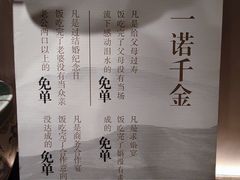 一诺千金
凡是给父母过寿
饭吃完了父母没有当场
流下感动泪水的免单
凡是过结婚纪念日
饭吃完了老婆没有当众亲
老公两口以上的免单
凡是求婚宴
饭吃完了婚没有求
成的免单
凡是商务合作宴
饭吃完了合作意向
没达成的免单